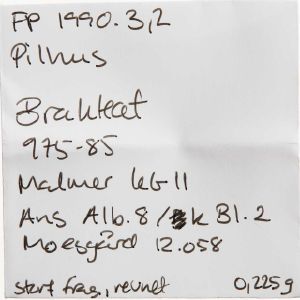 FP 1990.3,2
Pilhus
Brakteat
975-85
Malmer KG11
Ans Alb. 8 / k Bl. 2
Moesgård 12.058
stort frag, revnet 0,225g